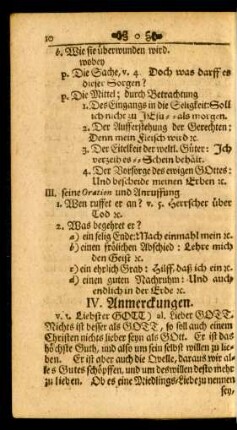 10 o
6. Wie sie überwunden wird.
wobey
p. Die Sache, v. 4. Doch was darff es
dieser Sorgen?
p. Die Mittel; durch Betrachtung
1. Des Eingangs in die Seligkeit: Soll
ich nicht zu JEsu -- als morgen.
2. Der Aufferstehung der Gerechten:
Denn mein Fleisch wird ꝛc.
3. Der Eitelkeit der weltl. Güter: Ich
verzeih es -- Schein behält.
4. Der Vorsorge des ewigen GOttes:
Und bescheide meinen Erben ꝛc.
III. seine Oration und Anruffung
1. Wen ruffet er an? v. 5. Herrscher über
Tod ꝛc.
2. Was begehret er?
a) ein selig Ende: Mach einmahl mein ꝛc.
b) einen frölichen Abschied: Lehre mich
den Geist ꝛc.
c) ein ehrlich Grab: Hilff, daß ich ein ꝛc.
d) einen guten Nachruhm: Und auch
endlich in der Erde ꝛc.
IV. Anmerckungen.
v. 1. Liebster GOTT) al. Lieber GOTT.
Nichts ist besser als GOTT, so soll auch einem
Christen nichts lieber seyn als GOtt. Er ist das
höchste Guth, und also um sein selbst willen zu lie-
ben. Er ist aber auch die Qvelle, daraus wir al-
les Gutes schöpffen, und um deswillen desto mehr
zu lieben. Ob es eine Miedlings-Liebe zu nennen
sey,